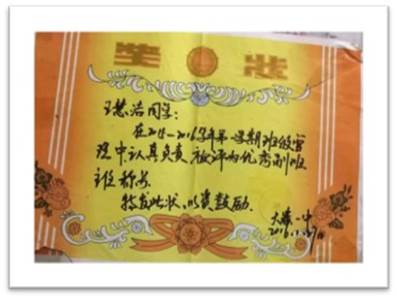 奖状
王慧浩同学:
在2015-2016学年第一学期班级管
理中认真负责 被评为优秀副班
班称号.
特发此状,以资鼓励.
大桥一中